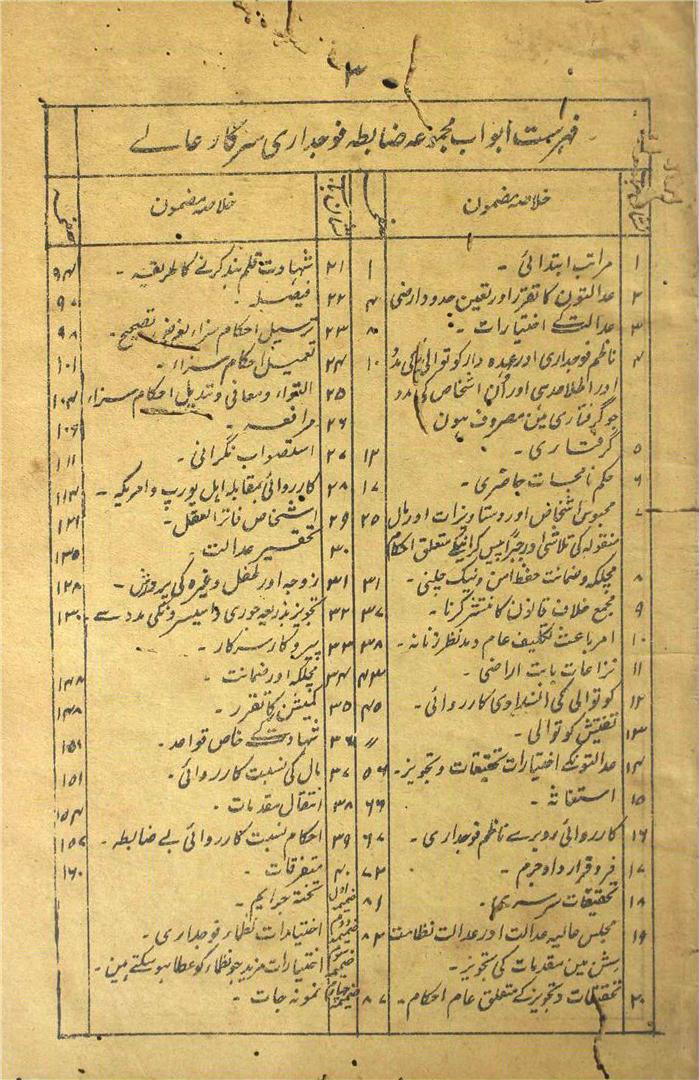 ۳
فہرست ابواب مجموعہ ضابطہ فوجداری سرکار عالے
خلاصہ مضمون صفحہ
۱ مراتب ابتدائی ۔ ۱
۲ عدالتون کا تقرر اور تعین حدود ارضی ۴
۳ عدالت کے اختیارات ۔ ۵
۴ ناظم فوجداری اور عہدہ دار کوتوالی کی مدد ۱۰
اور اطلاعدہی اور اُن اشخاص کی مدد
جو گرفتاری مین مصروف ہون
۵ گرفتاری ۔ ۱۲
۶ حکم نامجات حاضری ۔ ۱۷
۷ محبوس اشخاص اور دستاویزات اور مال ۲۵
منقولہ کی تلاشی اور جبراً پیش کرانیکے متعلق احکام
۸ مچلکہ و ضمانت حفظ امن و نیک چلنی ۔ ۳۱
۹ مجمع خلاف قانون کا منتشر کرنا ۔ ۳۷
۱۰ امر باعث تکلیف عام و مدنظر زنانہ ۔ ۳۸
۱۱ نزاعات بابت اراضی ۔ ۴۳
۱۲ کوتوالی کی انسدادی کارروائی ۔ ۴۵
۱۳ تفتیش کوتوالی ۔ ؍؍
۱۴ عدالتونکے اختیارات تحقیقات و تجویز ۔ ۵۶
۱۵ استغاثہ ۔ ۶۶
۱۶ کارروائی روبرے ناظم فوجداری ۔ ۶۷
۱۷ فرد قرار داد جرم ۔ ۷۲
۱۸ تحقیقات سرسری ۔ ۸۱
۱۹ مجلس عالیہ عدالت اور عدالت نظامت ۸۲
سشن مین مقدمات کی تجویز ۔
۲۰ تحقیقات و تجویز کے متعلق عام احکام ۔ ۸۷
خلاصہ مضمون صفحہ
۲۱ شہادت قلمبند کرنے کا طریقہ ۔ ۹۴
۲۲ فیصلہ ۔ ۹۷
۲۳ ترسیل احکام سزاء بغرض تصحیح ۔ ۹۸
۲۴ تعمیل احکام سزاء ۔ ۱۰۱
۲۵ التواء و معافی و تبدیل احکام سزاء ۱۰۴
۲۶ مرافعہ ۔ ۱۰۶
۲۷ استصواب نگرانی ۔ ۱۱۱
۲۸ کارروائی بمقابلہ اہل یورپ و امریکہ ۔ ۱۱۴
۲۹ اشخاص فاترالعقل ۔ ۱۲۱
۳۰ تحقیر عدالت ۔ ۱۲۵
۳۱ زوجہ اور طفل وغیرہ کی پرورش ۔ ۱۲۸
۳۲ تجویز بذریعہ جوری و اسیسرونکی مدد سے ۔ ۱۳۰
۳۳ پیروکار سرکار ۔
۳۴ مچلکہ اور ضمانت ۔ ۱۴۸
۳۵ کمیشن کا تقرر ۔ ۱۴۸
۳۶ شہادت کے خاص قواعد ۔ ۱۵۱
۳۷ مال کی نسبت کارروائی ۔ ۱۵۱
۳۸ انتقال مقدمات ۔ ۱۵۴
۳۹ احکام نسبت کارروائی بے ضابطہ ۔ ۱۵۷
۴۰ متفرقات ۔ ۱۶۰
ضمیمہ اول تختہ جرایم ۔
ضمیمہ دوم اختیارات نظماء فوجداری ۔
ضمیمہ سوم اختیارات مزید جو نظماء کو عطا ہو سکتے ہین ۔
ضمیمہ چہارم نمونہ جات ۔